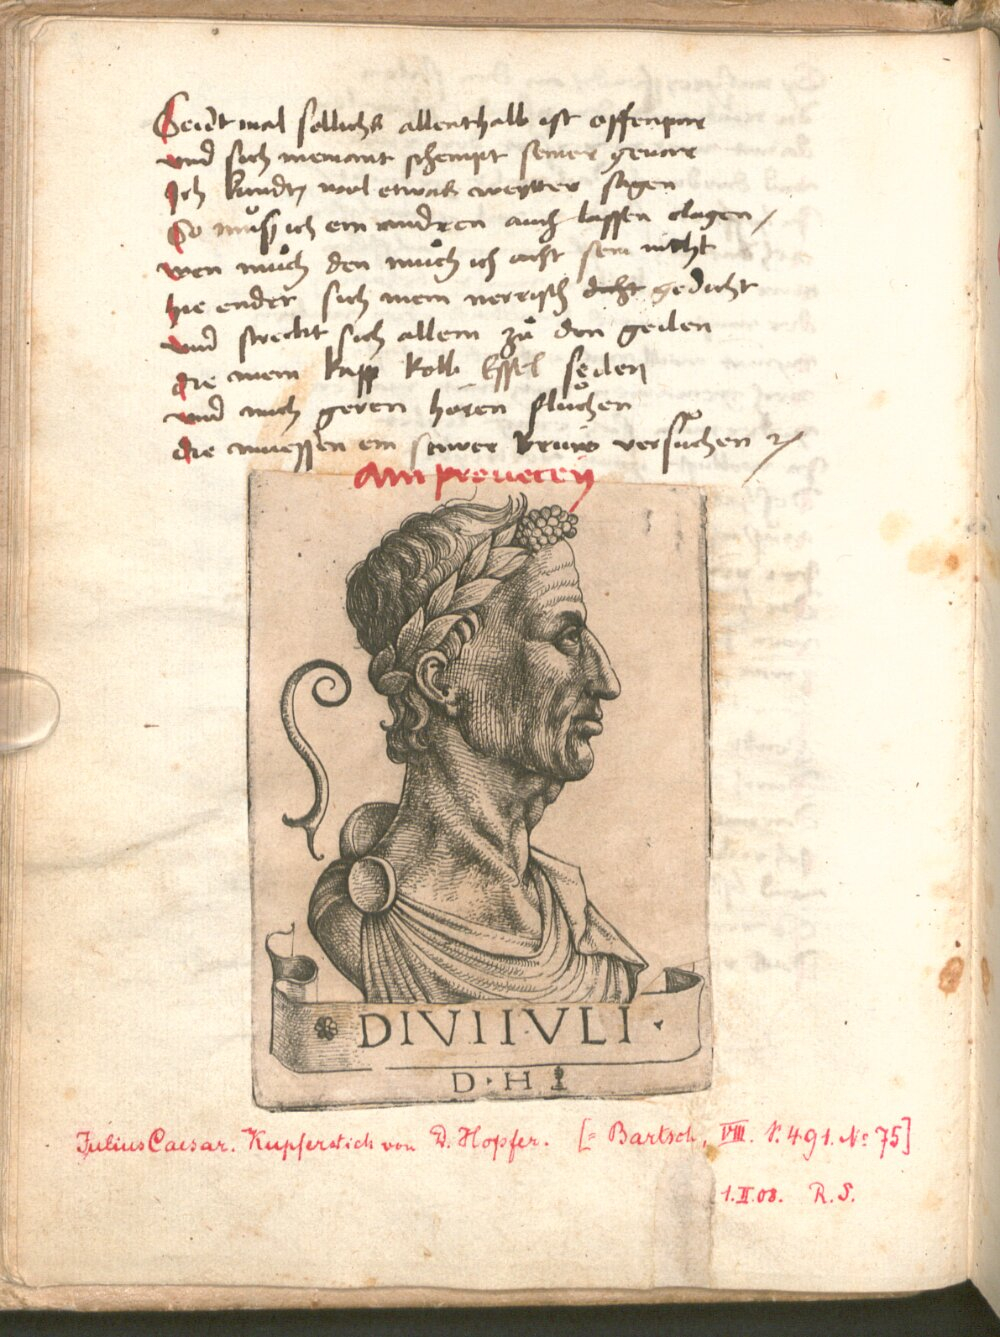 Seidt mal sollichs allenthalb ist offenpar
und sich niemant schempt seiner gevar
Ich kundt wol etwas weytter sagen
So muß ich ein andren auch lassen clagen /
wen muͦch den muͦch ich acht sein nitht
hie endet sich mein nerrisch dicht gedicht
und streckt sich allein zuͦ den geilen
die mein kapp kolb Essel seilen
und mich geren horen fluͦchen
die muessen ein seurer versuͦchen
Am
DIVI IVLI
D · H
Julius Caesar. Kupferstich von D. Hopfer. [= Bartsch, VIII. S. 491. No 75]
1.II.08. R. S.